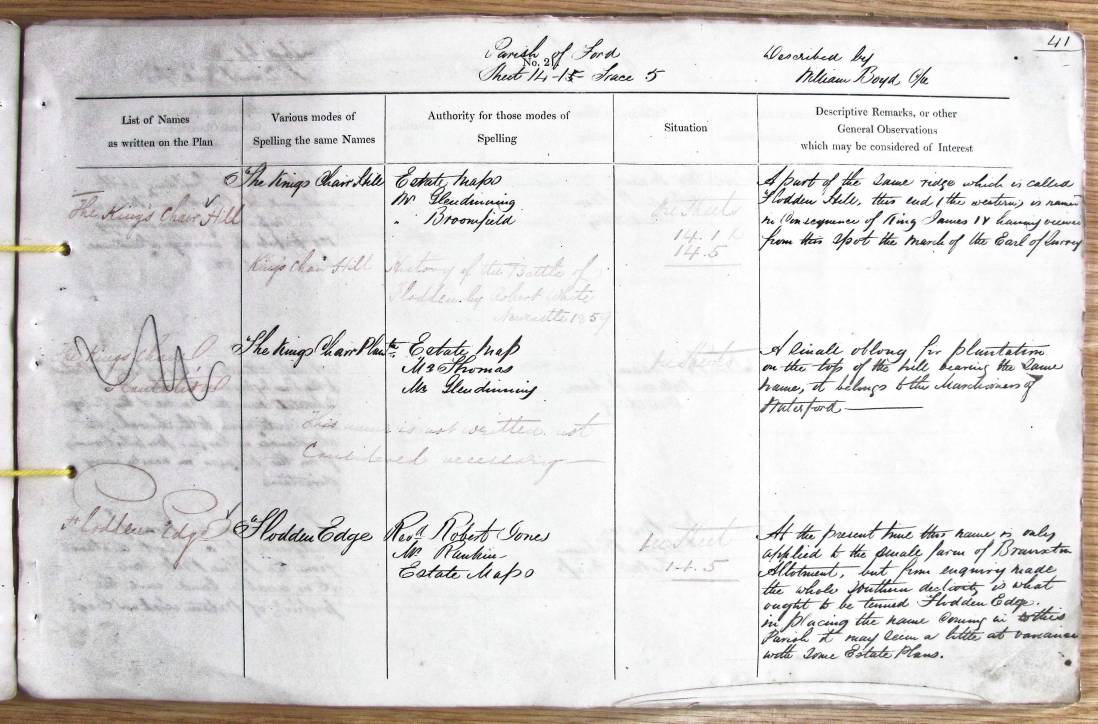 41
Parish of Ford
No. 2
Sheet 14-15 Trace 5
Described by
William Boyd C/a
List of Names
as written on the Plan
Various modes of
Spelling the same Names
Authority for those modes of
Spelling
Situation
Descriptive Remarks, or other
General Observations
which may be considered of Interest
The Kings Chair Hill
The Kings Chair Hill
Estate Maps
Mr Glendinning
" Broomfield
14.1
14.5
A part of the same ridge which is called
Flodden Hill, this end (the western) is named
in Consequence of King James IV having viewed
from this spot the March of the Earl of Surrey
Kings Chair Hill
History of the Battle of
Flodden by Robert White
Newcastle 1859
The Kings Chair
Plantation
The Kings Chair Plantn
Estate Map
Mr Thomas
Mr Glendinning
A small oblong fir plantation
on the top of the hill bearing the same
name, it belongs to the Marchioness of
Waterford
This name is not written not
Considered necessary
Flodden Edge
Flodden Edge
Revd Robert Jones
Mr Rankin
Estate Maps
See Sheet
14.5
At the present time this name is only
applied to the small farm of Branxton
Allotment, but from enquiry made
the whole southern declivity is what
ought to be termed Flodden Edge.
in placing the name coming in to this
Parish it may seem a little at variance
with some Estate Plans.